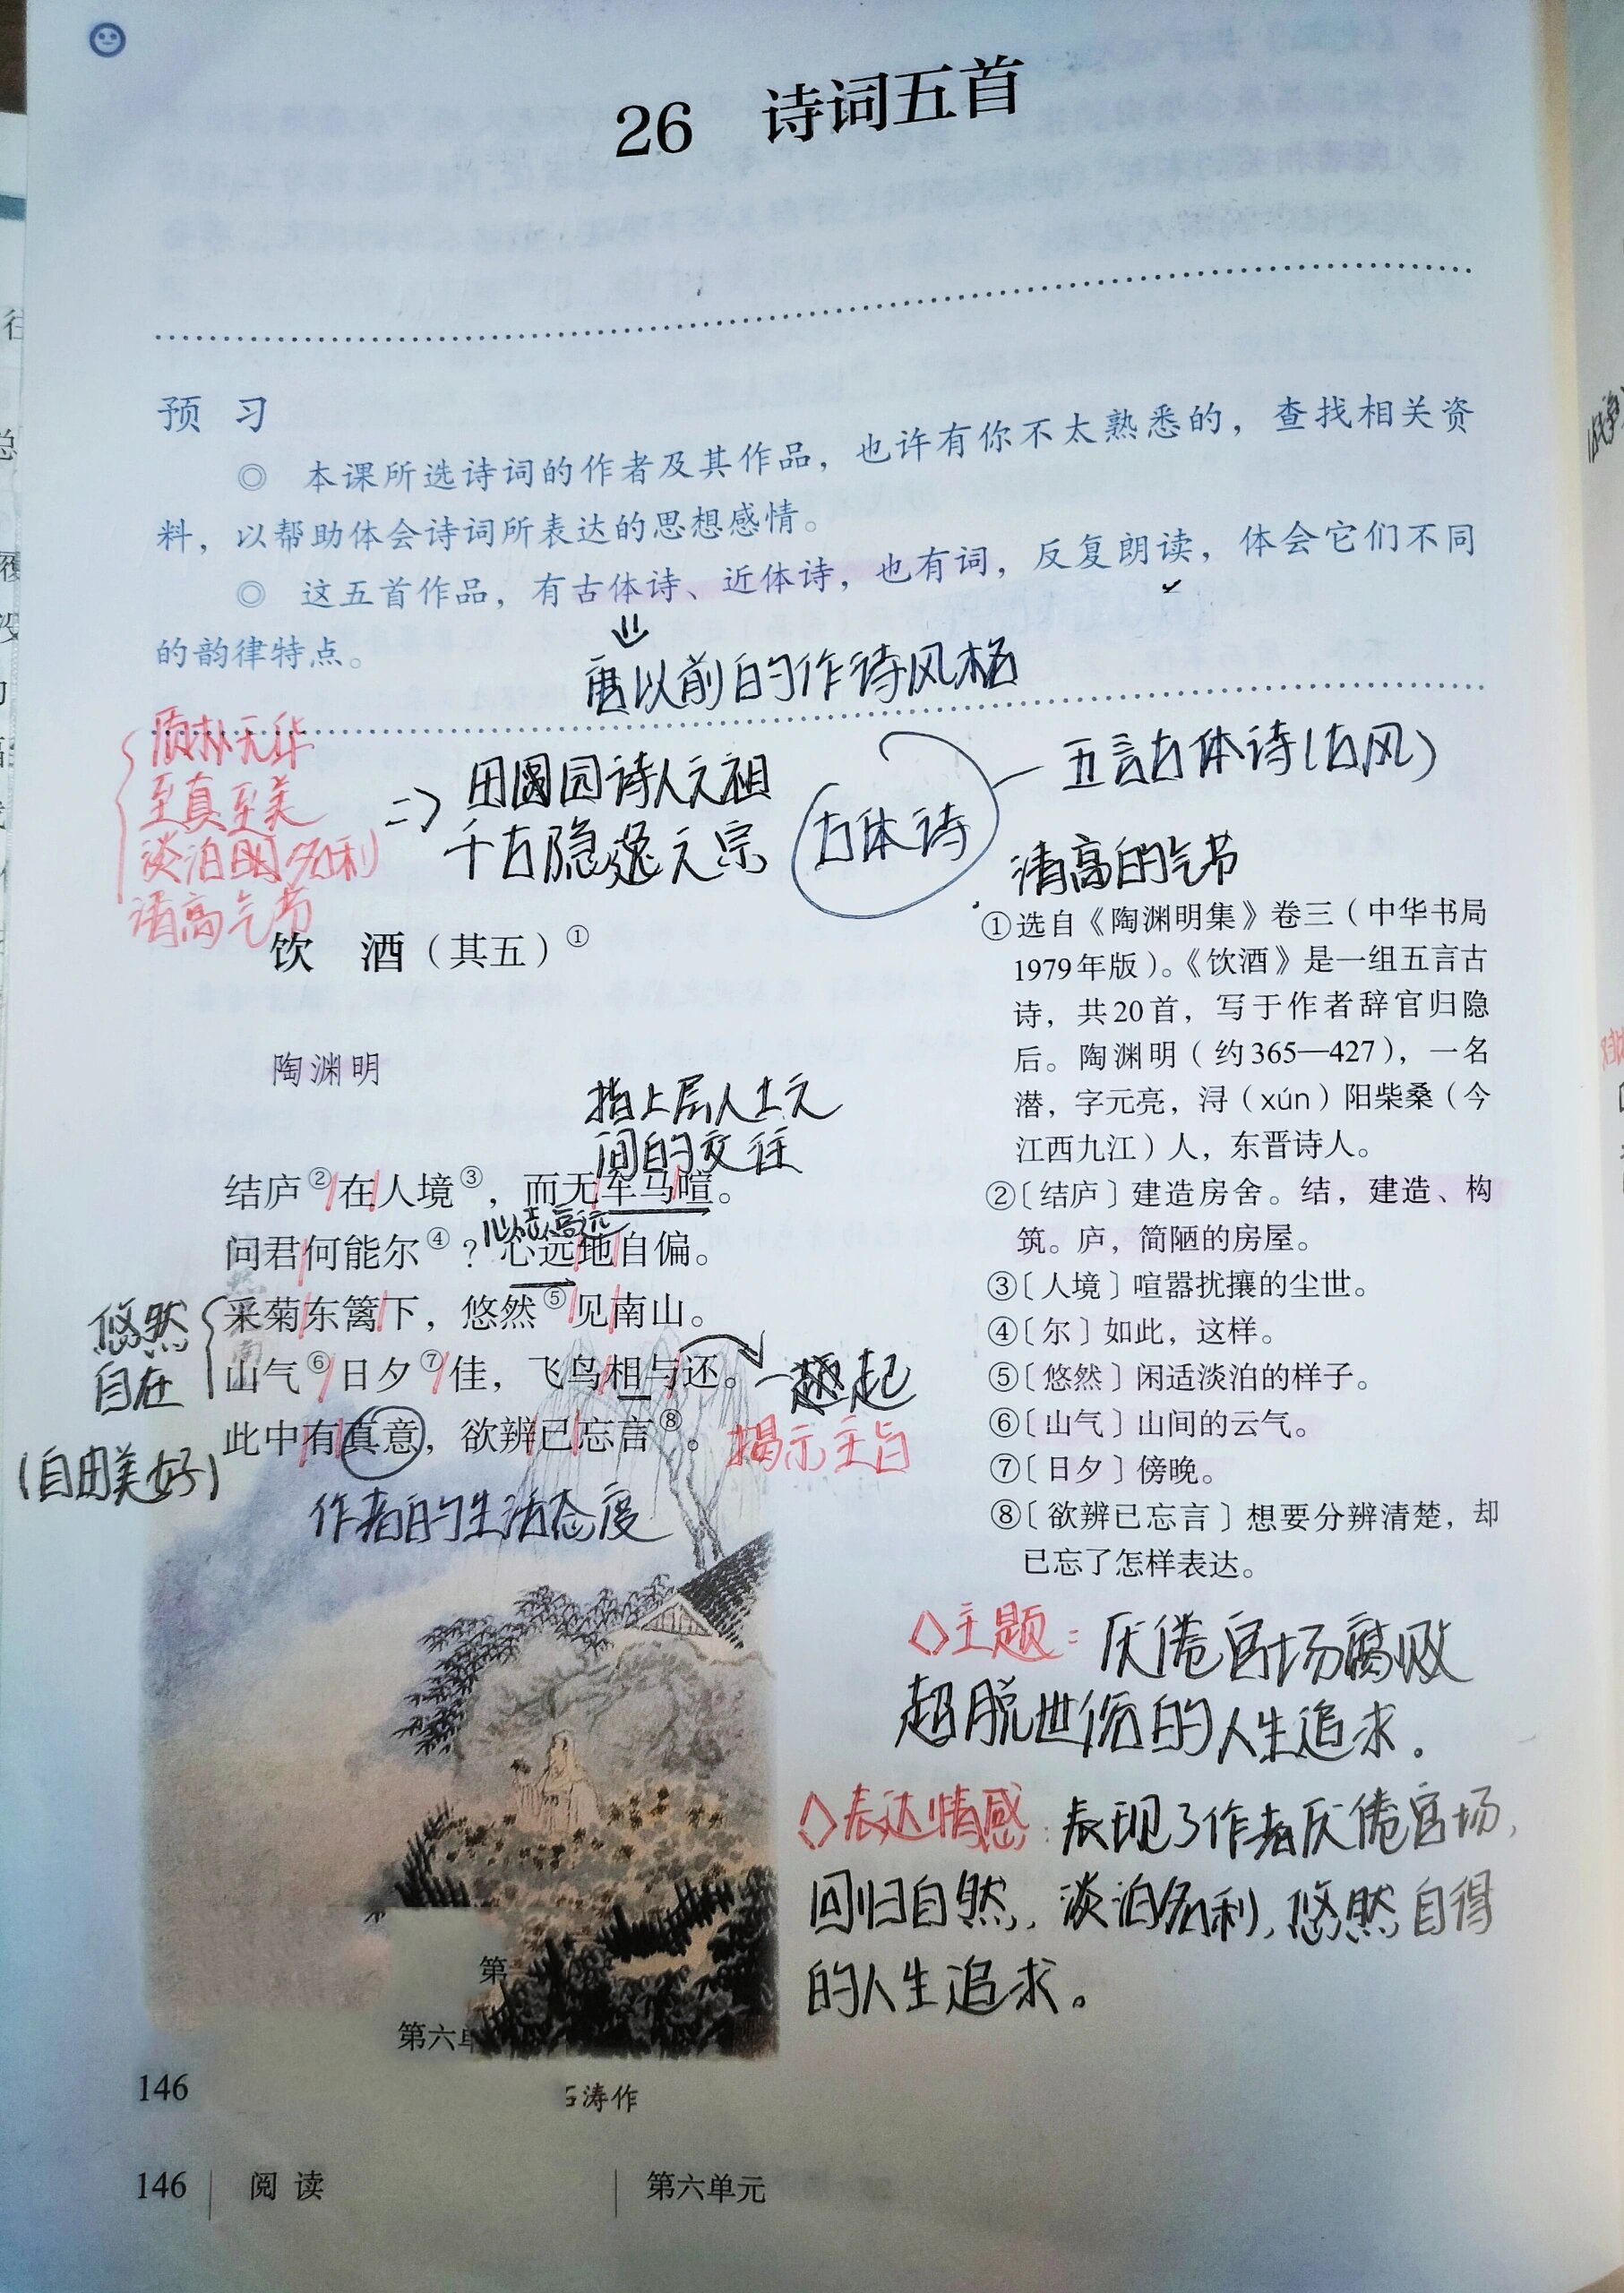 26 诗词五首
预 习
◎ 本课所选诗词的作者及其作品，也许有你不太熟悉的，查找相关资
料，以帮助体会诗词所表达的思想感情。
◎ 这五首作品，有古体诗、近体诗，也有词，反复朗读，体会它们不同
的韵律特点。
唐以前的作诗风格
质朴无华
至真至美
淡泊名利
清高气节
=> 田园诗人之祖
千古隐逸之宗
古体诗
五言古体诗(古风)
清高的气节
饮 酒（其五）①
陶渊明
指上层人士之
间的交往
结庐②在人境③，而无车马喧。
心志高远
问君何能尔④？心远地自偏。
采菊东篱下，悠然⑤见南山。
山气⑥日夕⑦佳，飞鸟相与还。
此中有真意，欲辨已忘言⑧。
悠然
自在
(自由美好)
一起
揭示主旨
作者的生活态度
①选自《陶渊明集》卷三（中华书局
1979年版）。《饮酒》是一组五言古
诗，共20首，写于作者辞官归隐
后。陶渊明（约365—427），一名
潜，字元亮，浔（xún）阳柴桑（今
江西九江）人，东晋诗人。
②〔结庐〕建造房舍。结，建造、构
筑。庐，简陋的房屋。
③〔人境〕喧嚣扰攘的尘世。
④〔尔〕如此，这样。
⑤〔悠然〕闲适淡泊的样子。
⑥〔山气〕山间的云气。
⑦〔日夕〕傍晚。
⑧〔欲辨已忘言〕想要分辨清楚，却
已忘了怎样表达。
◇主题：厌倦官场腐败
超脱世俗的人生追求。
◇表达情感：表现了作者厌倦官场，
回归自然，淡泊名利，悠然自得
的人生追求。
第
第六单
146
涛作
146 阅 读 第六单元